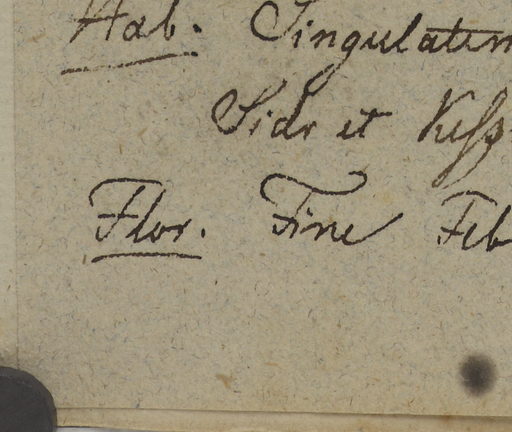 Hab. Singulatim
Sidr et Kesz
Flor. Fine Feb